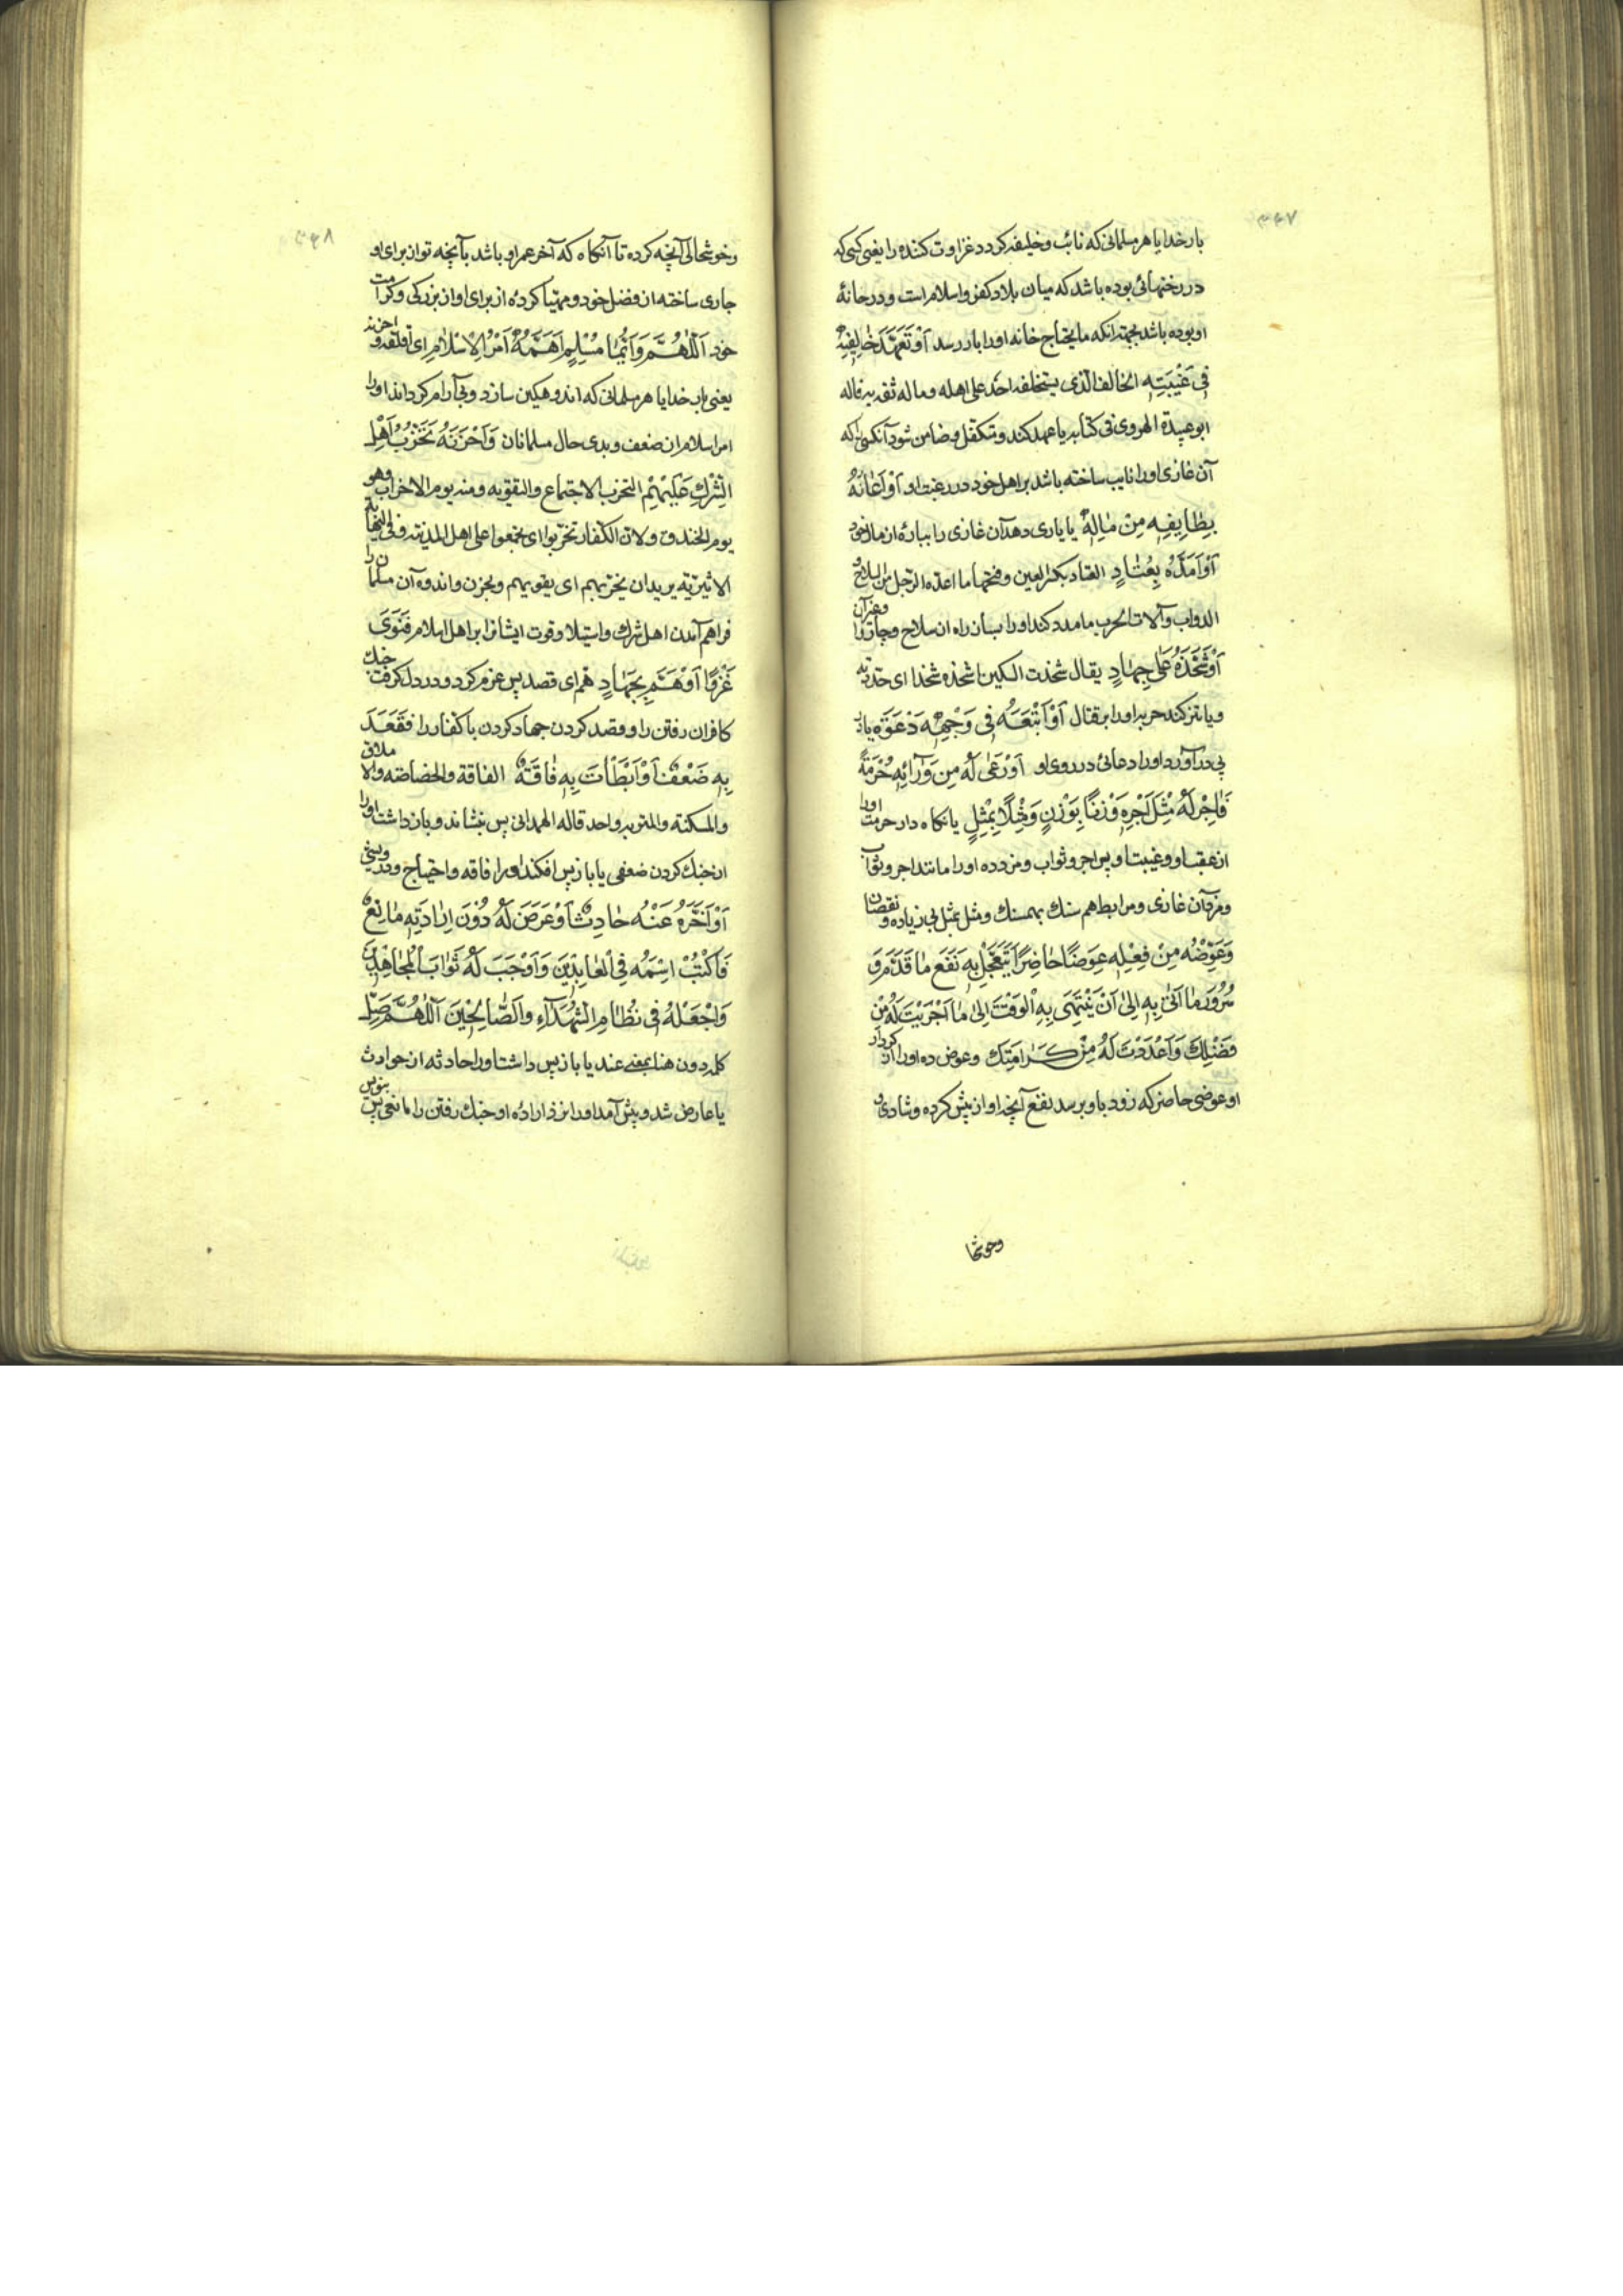 ۳۶۷
بارخدایا هر مسلمانی که نائب و خلیفه کردد غزاوت کننده را یعنی کسی که
در رختهائی بوده باشد که میان بلاد کفر و اسلام است و در خانهٔ
او بوده باشد بجهة انکه ما یحتاج خانه او را باز رسد اَوْ تَعَهَّدَ خٰالِفِیهِ
فِی غَیْبَتِهِ الخالف الذی یستخلفه احد علی اهله و ماله ثقة به قاله
ابو عبیدة الهروی فی کتابه یا عهد کند و متکفل و ضامن شود آنکسی را که
آن غازی او را نایب ساخته باشد بر اهل خود در غیبت او اَوْ اَعٰانَهُ
بِطٰایِفِهٍ مِنْ مٰالِهِ یا یاری دهد آن غازی را بپارهٔ از مال خود
اَوْ اَمَدَّهُ بِعُتٰادٍ العتاد بکسر العین و فتحها ما اعده الرجل من السلاح و
الدواب و آلات الحرب یا مدد کند او را بساز راه از سلاح و چاروا و غیر آن
اَوْ شَحَذَهُ عَلٰی جِهٰادٍ یقال شحذت السکین اشحذه شحذا ای حددته
و یا تیز کند حربه او را بر قتال اَوْ اَتْبَعَهُ فِی وَجْهِهِ دَعْوَةً یا از
پی درآورد او را دعائی در روی او اَوْ رَعٰی لَهُ مِنْ وَرٰائِهِ حُرْمَةً
فَاٰجِرْ لَهُ مِثْلَ اَجْرِهِ وَزْنًا بِوَزْنٍ وَ مِثْلًا بِمِثْلٍ یا نکاه دارد حرمت او را
از عقب او و غیبت او پس اجر و ثواب و مزد ده او را مانند اجر و ثواب
و مزد آن غازی و مرابط هم سنك بهمسنك و مثل بمثل بی زیاده و نقصان
وَعَوِّضْهُ مِنْ فِعْلِهِ عِوَضًا حٰاضِرًا یَتَعَجَّلُ بِهِ نَفْعَ مٰا قَدَّمَ وَ
سُرُورَ مٰا اَتٰی بِهِ اِلٰی اَنْ یَنْتَهِیَ بِهِ الْوَقْتُ اِلٰی مٰا اَجْرَیْتَ لَهُ مِنْ
فَضْلِكَ وَ اَعْدَدْتَ لَهُ مِنْ کَرٰامَتِكَ و عوض ده او را از کردار
او عوضی حاضر که زود باو برسد نفع آنچه او از پیش کرده و شادی
وخوشحا
۳۶۸
و خوشحالی آنچه کرده تا آنکاه که آخر عمر او باشد بآنچه تو از برای او
جاری ساخته از فضل خود و مهیا کردهٔ از برای او از بزرکی و کرامت
خود اَللّٰهُمَّ وَ اَیُّمٰا مُسْلِمٍ اَهَمَّهُ اَمْرُ الْاِسْلٰامِ ای اقلقه و احزنه
یعنی بار خدایا هر مسلمانی که اندوهکین سازد و بی آرام کرداند او را
امر اسلام از ضعف و بدی حال مسلمانان وَ اَحْزَنَهُ تَحَزُّبُ اَهْلِ
الشِّرْكِ عَلَیْهِمْ التحزب الاجتماع و التقویه و منه یوم الاحزاب و هو
یوم الخندق و لان الکفار تحزبوا ای تجمعوا علی اهل المدینه و فی النهایة
الاثیریة یریدان یحزبهم ای یقویهم و بحزن و اندوه آن مسلمان را
فراهم آمدن اهل شرك و استیلا و قوت ایشان را بر اهل اسلام فَنَوٰی
غَزْوًا اَوْ هَمَّ بِجِهٰادٍ هم ای قصد پس عزم کرد و در دل کرفت جنك
کافران رفتن را و قصد کردن جهاد کردن با کفار را فَقَعَدَ
بِهِ ضَعْفٌ اَوْ اَبْطَأَتْ بِهِ فٰاقَةٌ الفاقة و الخصاصه و الاملاق
و المسکنة و المتربه واحد قاله الهمدانی پس بنشاند و بازداشت او را
از جنك کردن ضعفی یا باز پس افکند او را فاقه و احتیاج و درویشی
اَوْ اَخَّرَهُ عَنْهُ حٰادِثٌ اَوْ عَرَضَ لَهُ دُوْنَ اِرٰادَتِهِ مٰانِعٌ
فَاکْتُبْ اسْمَهُ فِی الْعٰابِدِیْنَ وَ اَوْجِبْ لَهُ ثَوٰابَ الْمُجٰاهِدِیْنَ
وَاجْعَلْهُ فِی نِظٰامِ الشُّهَدٰآءِ وَالصّٰالِحِیْنَ اَللّٰهُمَّ صَلِّ
کلمه دون هنا بمعنی عند یا باز پس داشت او را حادثه از حوادث
یا عارض شد و پیش آمد او را نزد ارادهٔ او جنك رفتن را مانعی پس بنویس